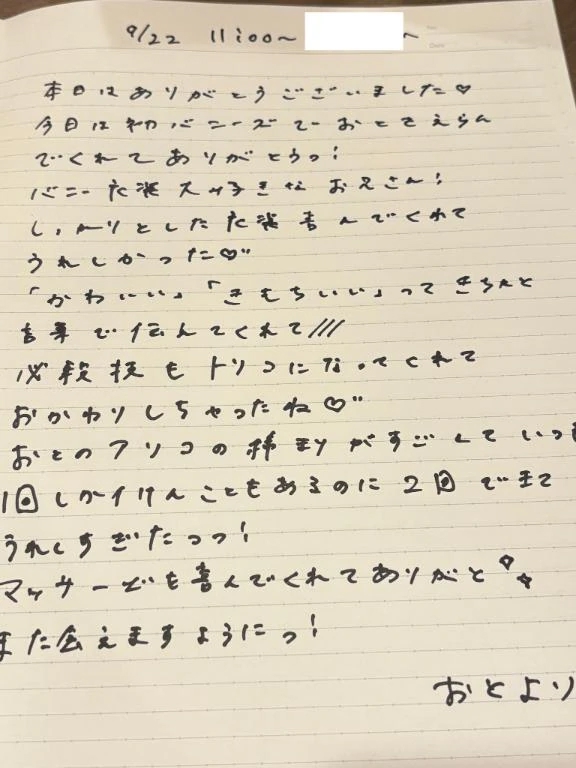 9/22 11:00〜 〜
本日はありがとうございました♡
今日は初バニーズでおとをえらん
でくれてありがとうっ!
バニー衣装大好きなお兄さん!
しっかりとした衣装喜んでくれて
うれしかった♡"
「かわいい」「きもちいい」ってきちんと
言葉で伝えてくれて///
必殺技もトリコになってくれて
おかわりしちゃったね♡"
おとのアソコの様まりがすごくていつも
1回しかイけんこともあるのに2回できて
うれしすぎたっっ!
マッサージも喜んでくれてありがと
また会えますようにっ!
おとより